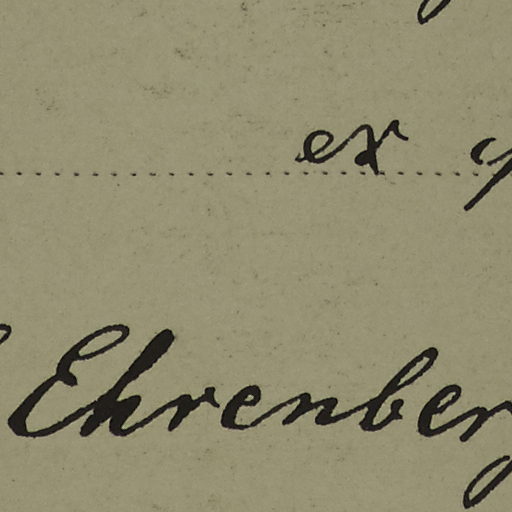 ex
Ehrenberg